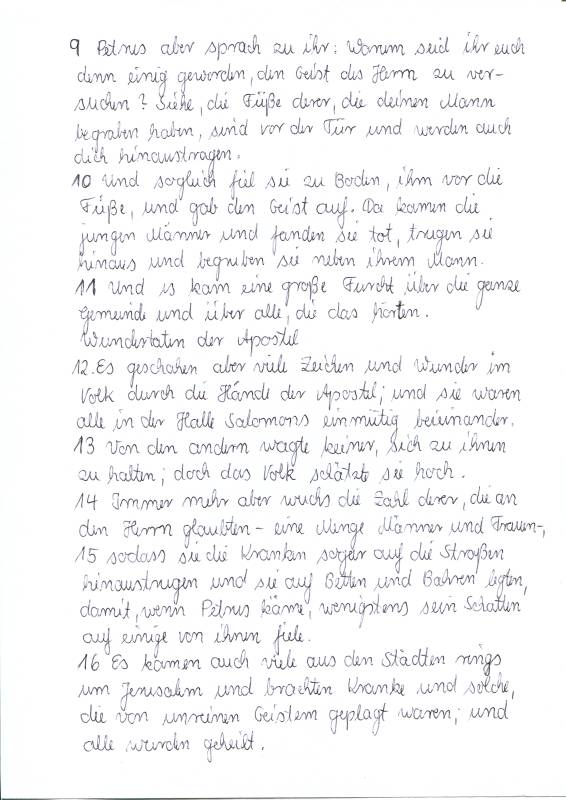 9 Petrus aber sprach zu ihr: Warum seid ihr euch
denn einig geworden, den Geist des Herrn zu ver-
suchen? Siehe, die Füße derer, die deinen Mann
begraben haben, sind vor der Tür und werden auch
dich hinaustragen.
10 Und sogleich fiel sie zu Boden, ihm vor die
Füße, und gab den Geist auf. Da kamen die
jungen Männer und fanden sie tot, trugen sie
hinaus und begruben sie neben ihrem Mann.
11 Und es kam eine große Furcht über die ganze
Gemeinde und über alle, die das hörten.
Wundertaten der Apostel
12. Es geschahen aber viele Zeichen und Wunder im
Volk durch die Hände der Apostel; und sie waren
alle in der Halle Salomons einmütig beieinander.
13 Von den andern wagte keiner, sich zu ihnen
zu halten; doch das Volk schätzte sie hoch.
14 Immer mehr aber wuchs die Zahl derer, die an
den Herrn glaubten - eine Menge Männer und Frauen-,
15 sodass sie die Kranken sogar auf die Straßen
hinaustrugen und sie auf Betten und Bahren legten,
damit, wenn Petrus käme, wenigstens sein Schatten
auf einige von ihnen fiele.
16 Es kamen auch viele aus den Städten rings
um Jerusalem und brachten Kranke und solche,
die von unreinen Geistern geplagt waren; und
alle wurden geheilt.